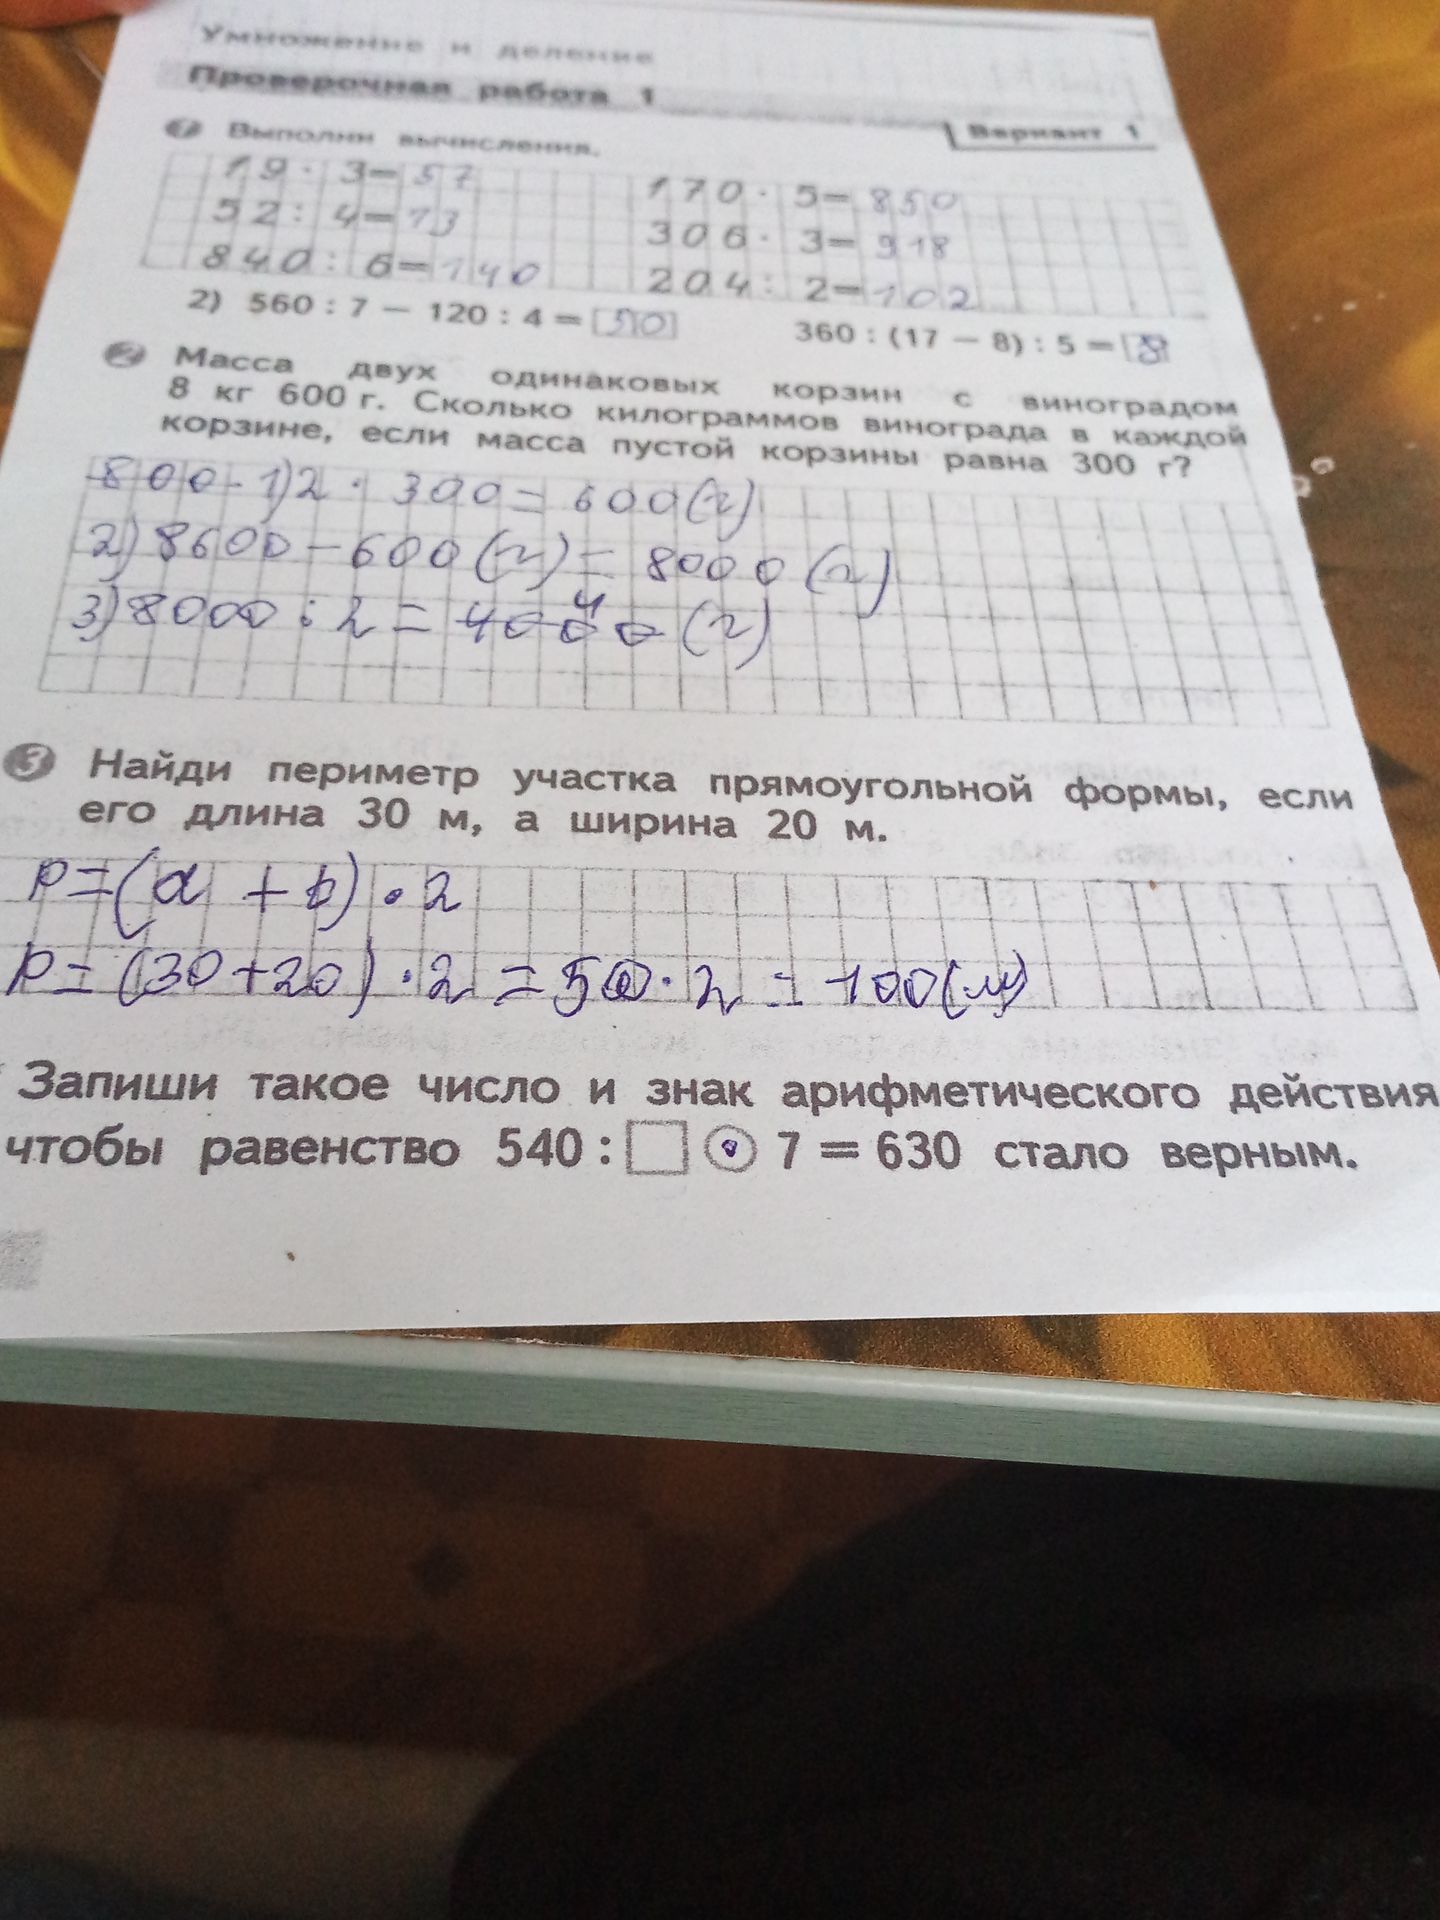 Умножение и деление
Проверочная работа 1
Вариант 1
1 Выполни вычисления.
19 · 3 = 57
170 · 5 = 850
52 : 4 = 13
306 · 3 = 918
840 : 6 = 140
204 : 2 = 102
2) 560 : 7 — 120 : 4 = 50
360 : (17 — 8) : 5 = 8
2 Масса двух одинаковых корзин с виноградом
8 кг 600 г. Сколько килограммов винограда в каждой
корзине, если масса пустой корзины равна 300 г?
800- 1) 2 · 300 = 600 (г)
2) 8600 – 600 (г) = 8000 (г)
4
3) 8000 : 2 = 4000 (г)
3 Найди периметр участка прямоугольной формы, если
его длина 30 м, а ширина 20 м.
p = (a + b) · 2
p = (30 + 20) · 2 = 50 · 2 = 100 (м)
Запиши такое число и знак арифметического действия
чтобы равенство 540 : · 7 = 630 стало верным.